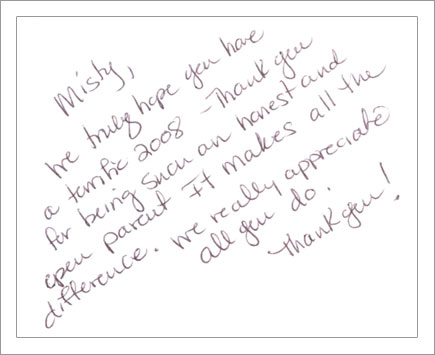 Misty,
We truly hope you have
a terrific 2008 - Thank you
for being such an honest and
open parent It makes all the
difference. We really appreciate
all you do.
Thank you!